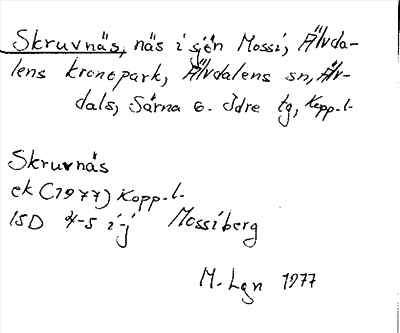 Skruvnäs, näs i sjön Mossi, Älvda-
lens kronopark, Älvdalens sn, Älv-
dals, Särna o. Idre tg, Kopp. l.
Skruvnäs
ek (1977) Kopp. l.
15D 4-5 i-j Mossiberg
M. Lgn 1977